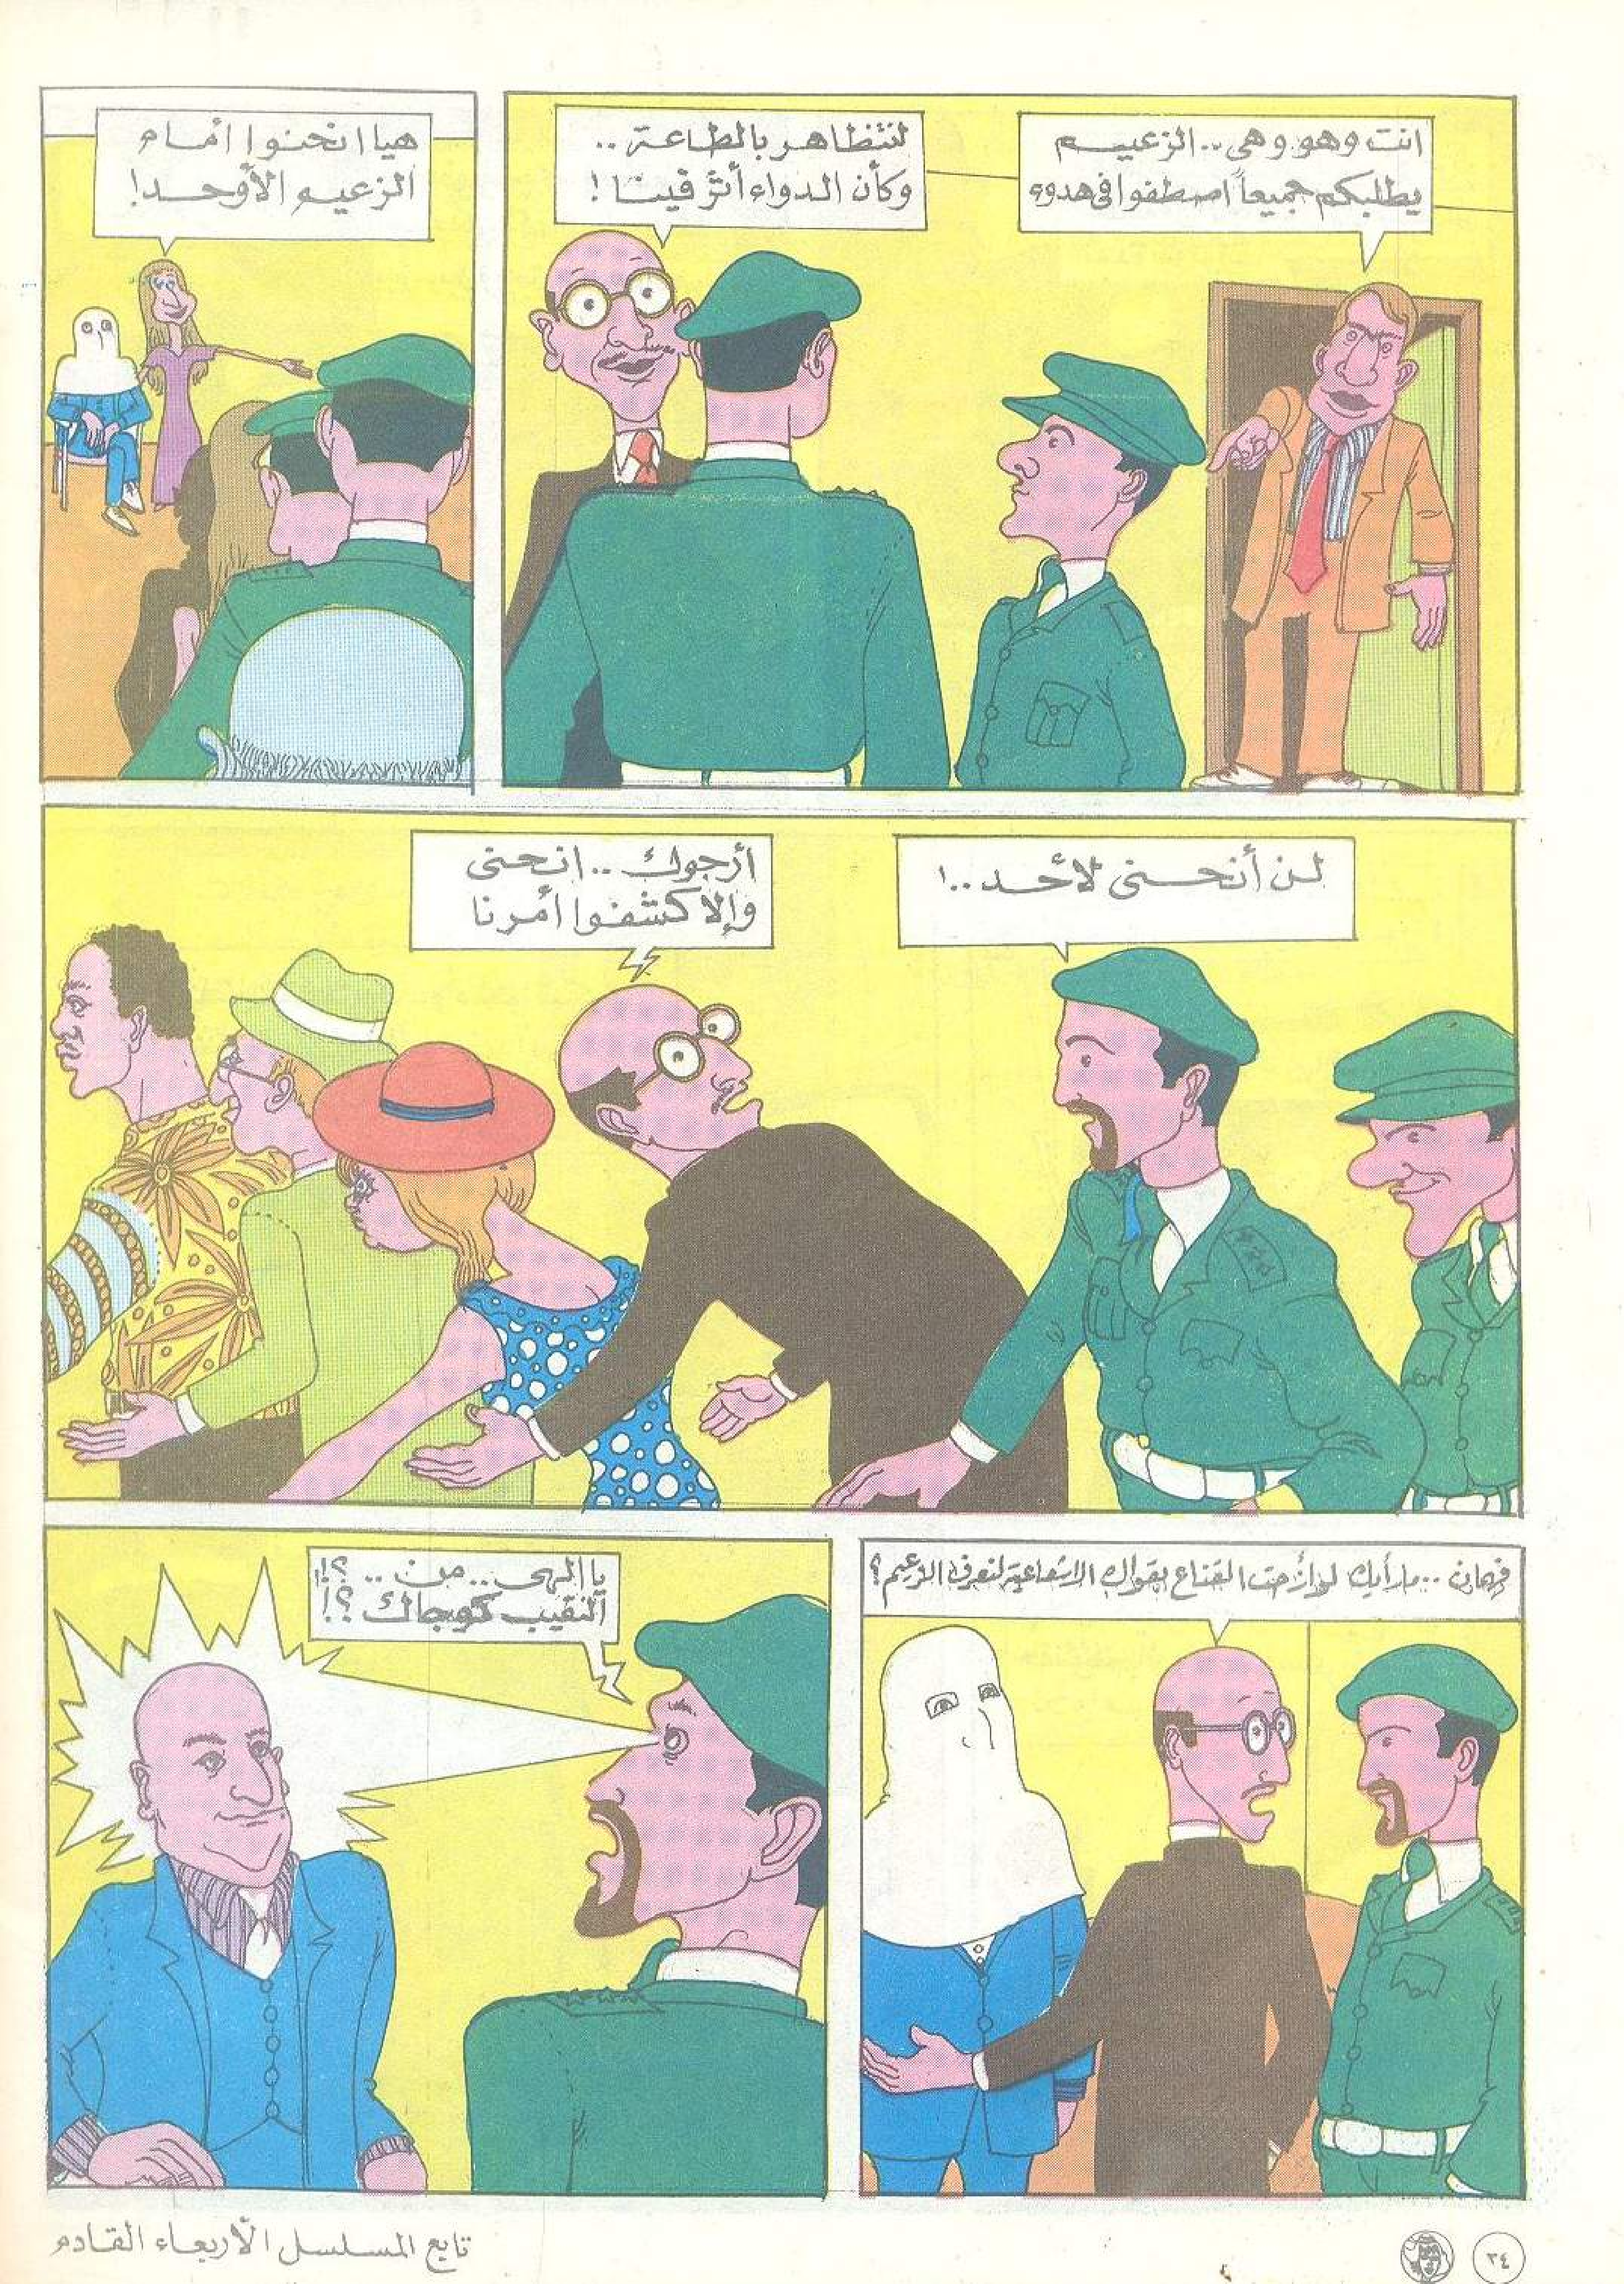 انت وهو وهى .. الزعيم
يطلبكم جميعاً اصطفوا فى هدوء
لنتظاهر بالطاعة ..
وكأن الدواء أثر فينا !
هيا انحنوا أمام
الزعيم الأوحد!
لن أنحنى لأحد ..!
أرجوك .. انحنى
وإلا كشفوا أمرنا
فهمان .. ما رأيك لو أزحت القناع بقواك الاشعاعية لنعرف الزعيم ؟
يا إلهى .. من .. ؟!
النقيب كوجاك ؟!
٣٤
تابع المسلسل الأربعاء القادم